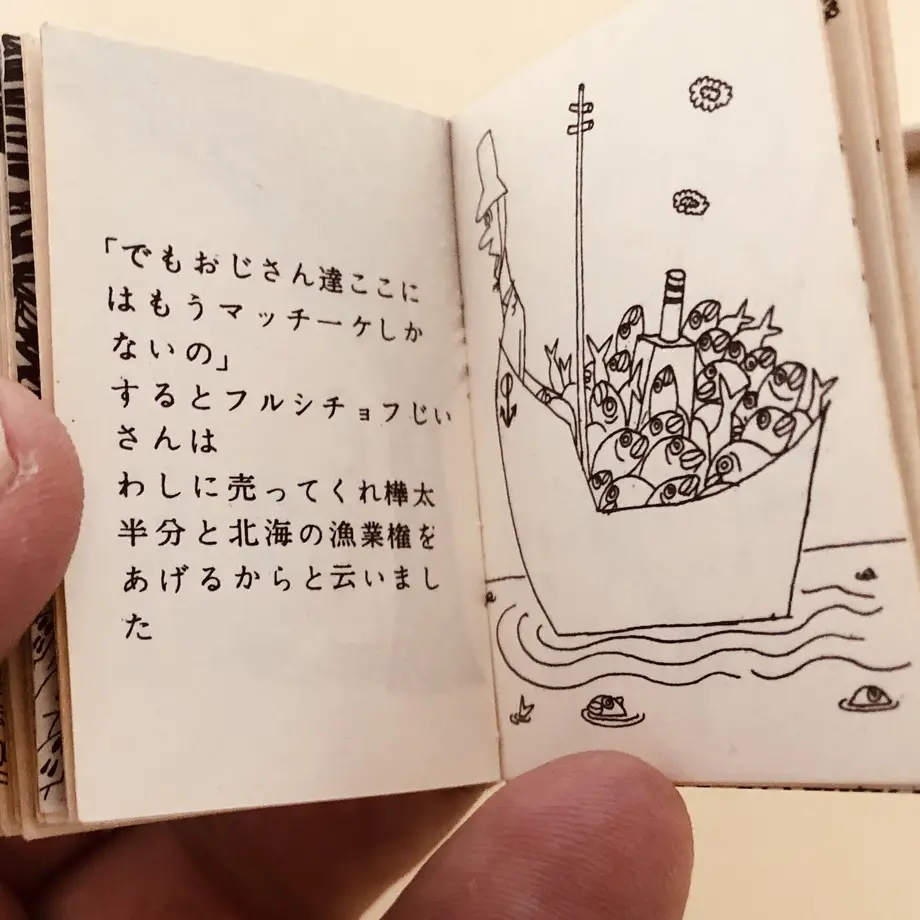 「でもおじさん達ここに
はもうマッチ一ケしか
ないの」
するとフルシチョフじい
さんは
わしに売ってくれ樺太
半分と北海の漁業権を
あげるからと云いまし
た